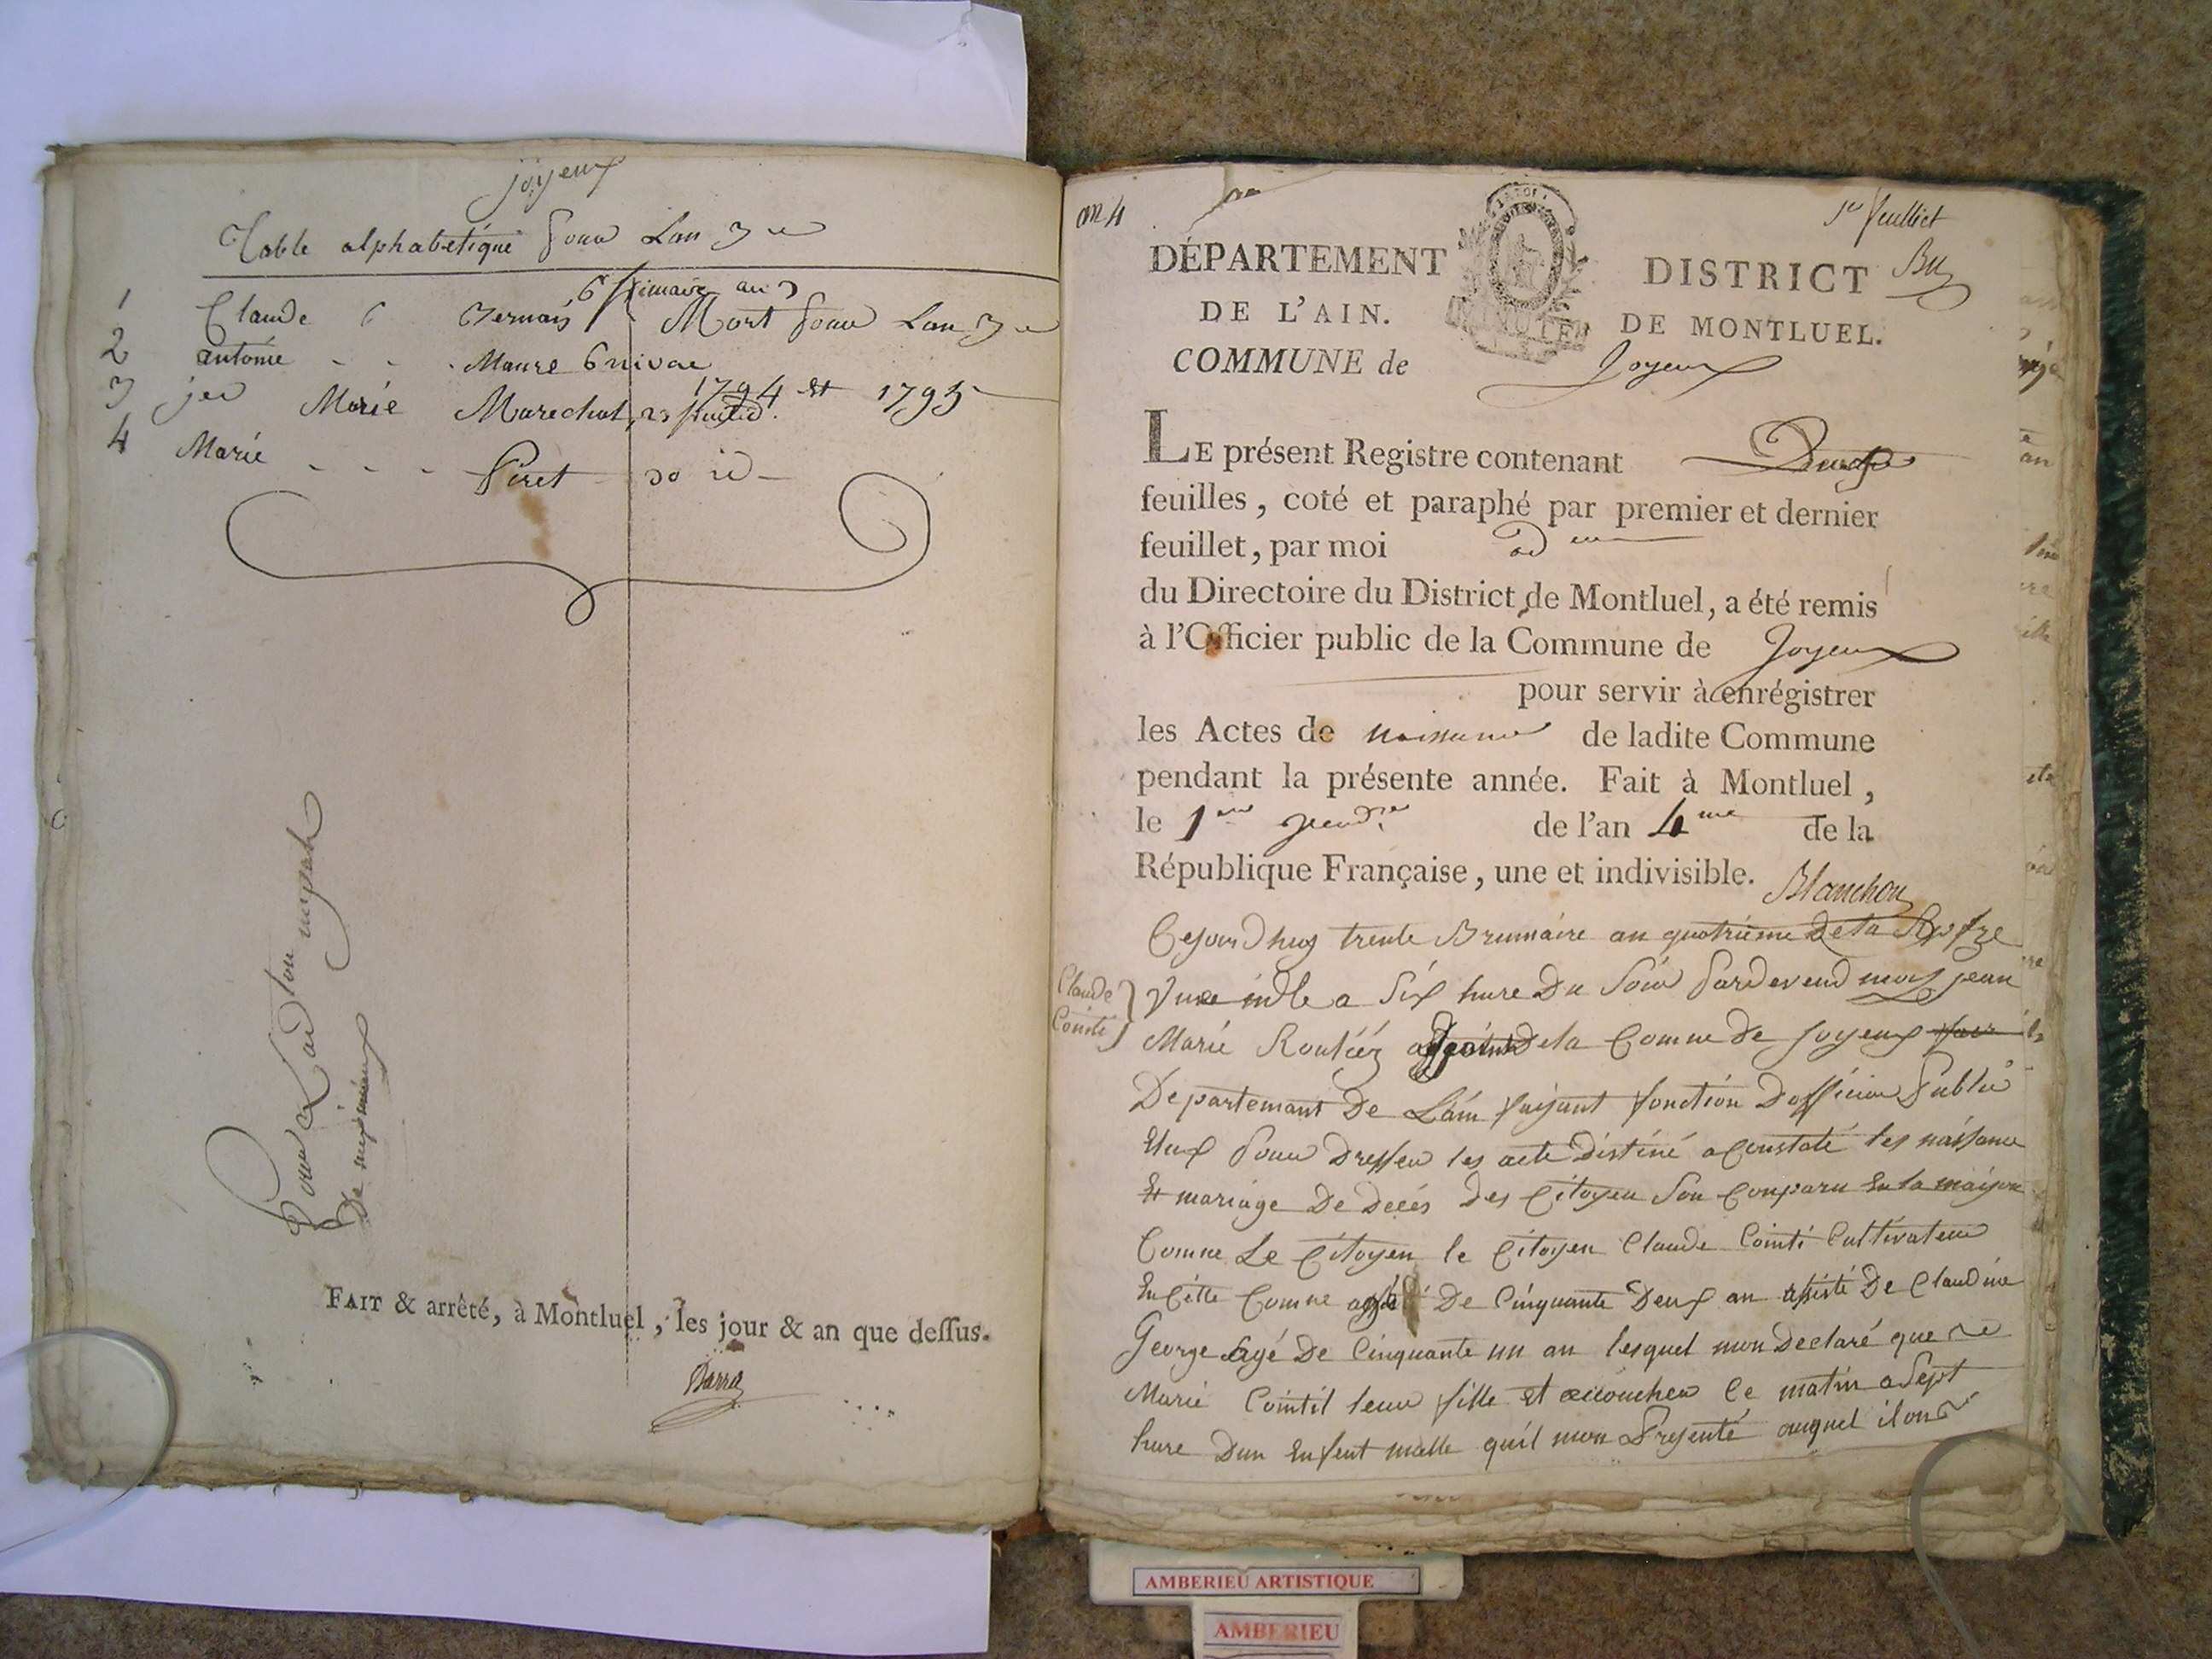 joyeux
Table alphabetique pour Lan 3
6 frimaire an 3
1 Claude Bernais Mort pour Lan 3
2 antoine - - Maure 6 nivose
1794 et 1795
3 Marie Marechal 23
4 Marie - - - Piret 30 id
De
FAIT & arrêté, à Montluel, les jour & an que dessus.
Barra
an 4
1er feuillet
DÉPARTEMENT
DE L'AIN.
DISTRICT
DE MONTLUEL.
MINUTE
COMMUNE de Joyeux
LE présent Registre contenant Deux
feuilles, coté et paraphé par premier et dernier
feuillet, par moi ad
du Directoire du District de Montluel, a été remis
à l'Officier public de la Commune de Joyeux
pour servir à enrégistrer
les Actes de naissance de ladite Commune
pendant la présente année. Fait à Montluel,
le 1er de l'an 4me de la
République Française, une et indivisible.
Blanchon
Cejourdhuy trente Brumaire an quatrieme de la
Claude
Cointi
a Six hure Du Soir Pardevend moy jean
Marie dela Comne De joyeux
Departemant De Lain faijant fonction Dofficier Public
Elux pour Dresser les acte Distiné a Constaté les naissance
Et mariage De Decés Des Citoyen Son Conparu En la maison
Comne Le Citoyen le Citoyen Claude Cointi Cultivateur
En Cette Comne De Cinquante Deux an assisté De Claudine
George agé De Cinquante un an lesquel mon Declaré que
Marie Cointil leur fille Et accoucher Ce matin a Sept
hure Dun Enfent malle quil mon Presenté auquel il on
AMBERIEU ARTISTIQUE
AMBERIEU